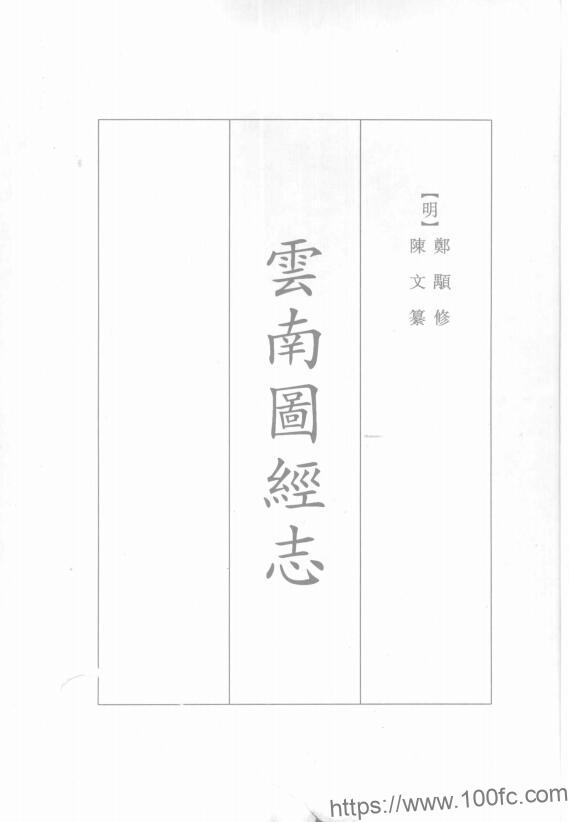 【明】
鄭顒修
陳文纂
雲南圖經志
https://www.100fc.com